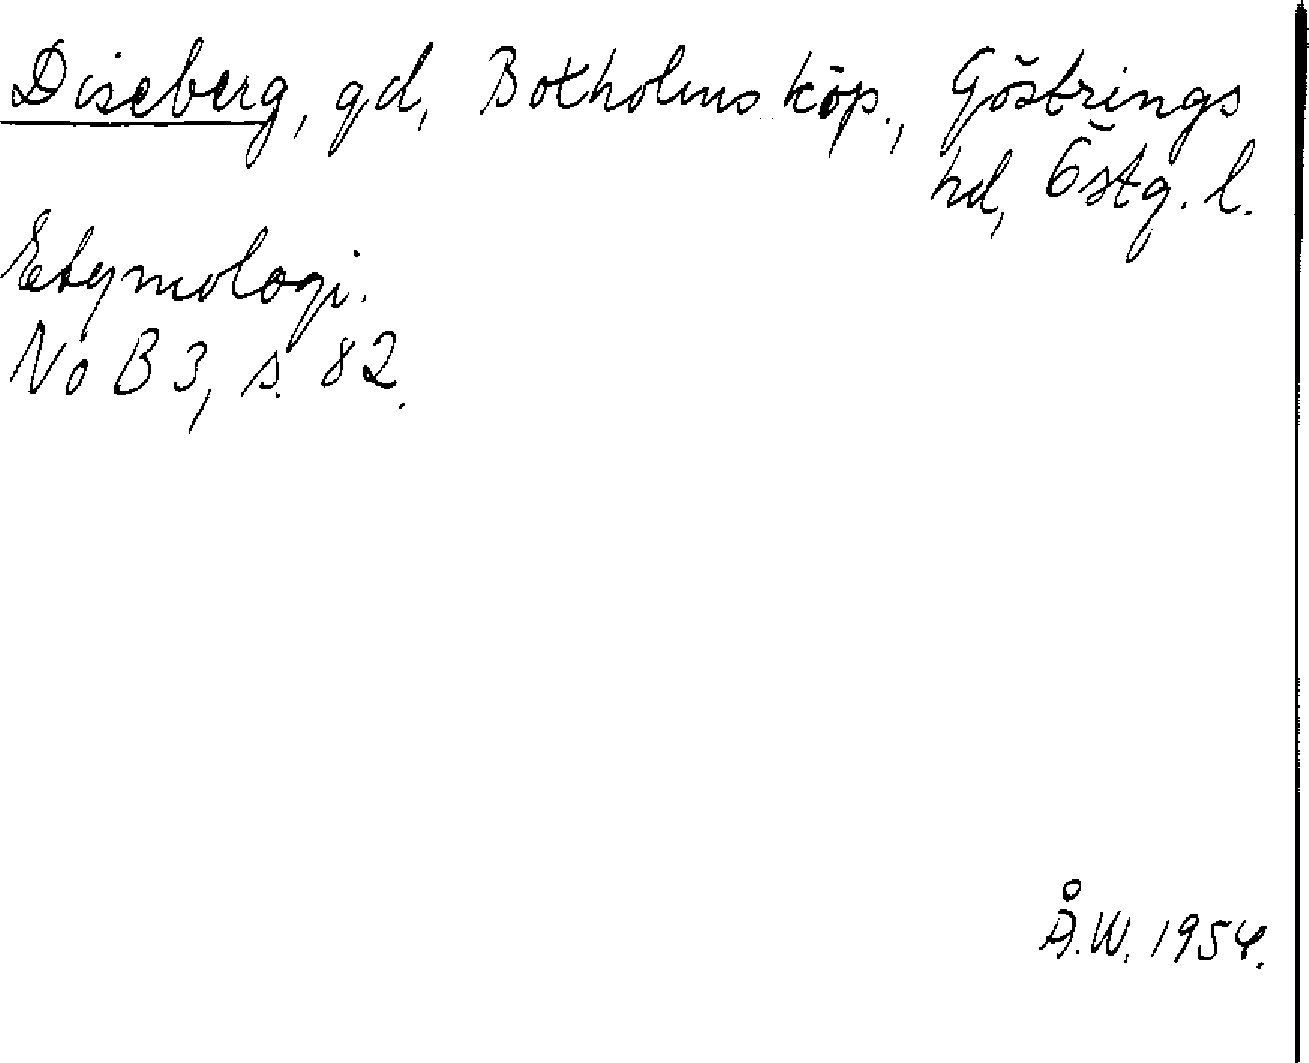 Diseberg, gd, Boxholms köp., Göstrings
hd, Östg. l.
Etymologi.
NoB 3, s. 82.
Å.W. 1954.